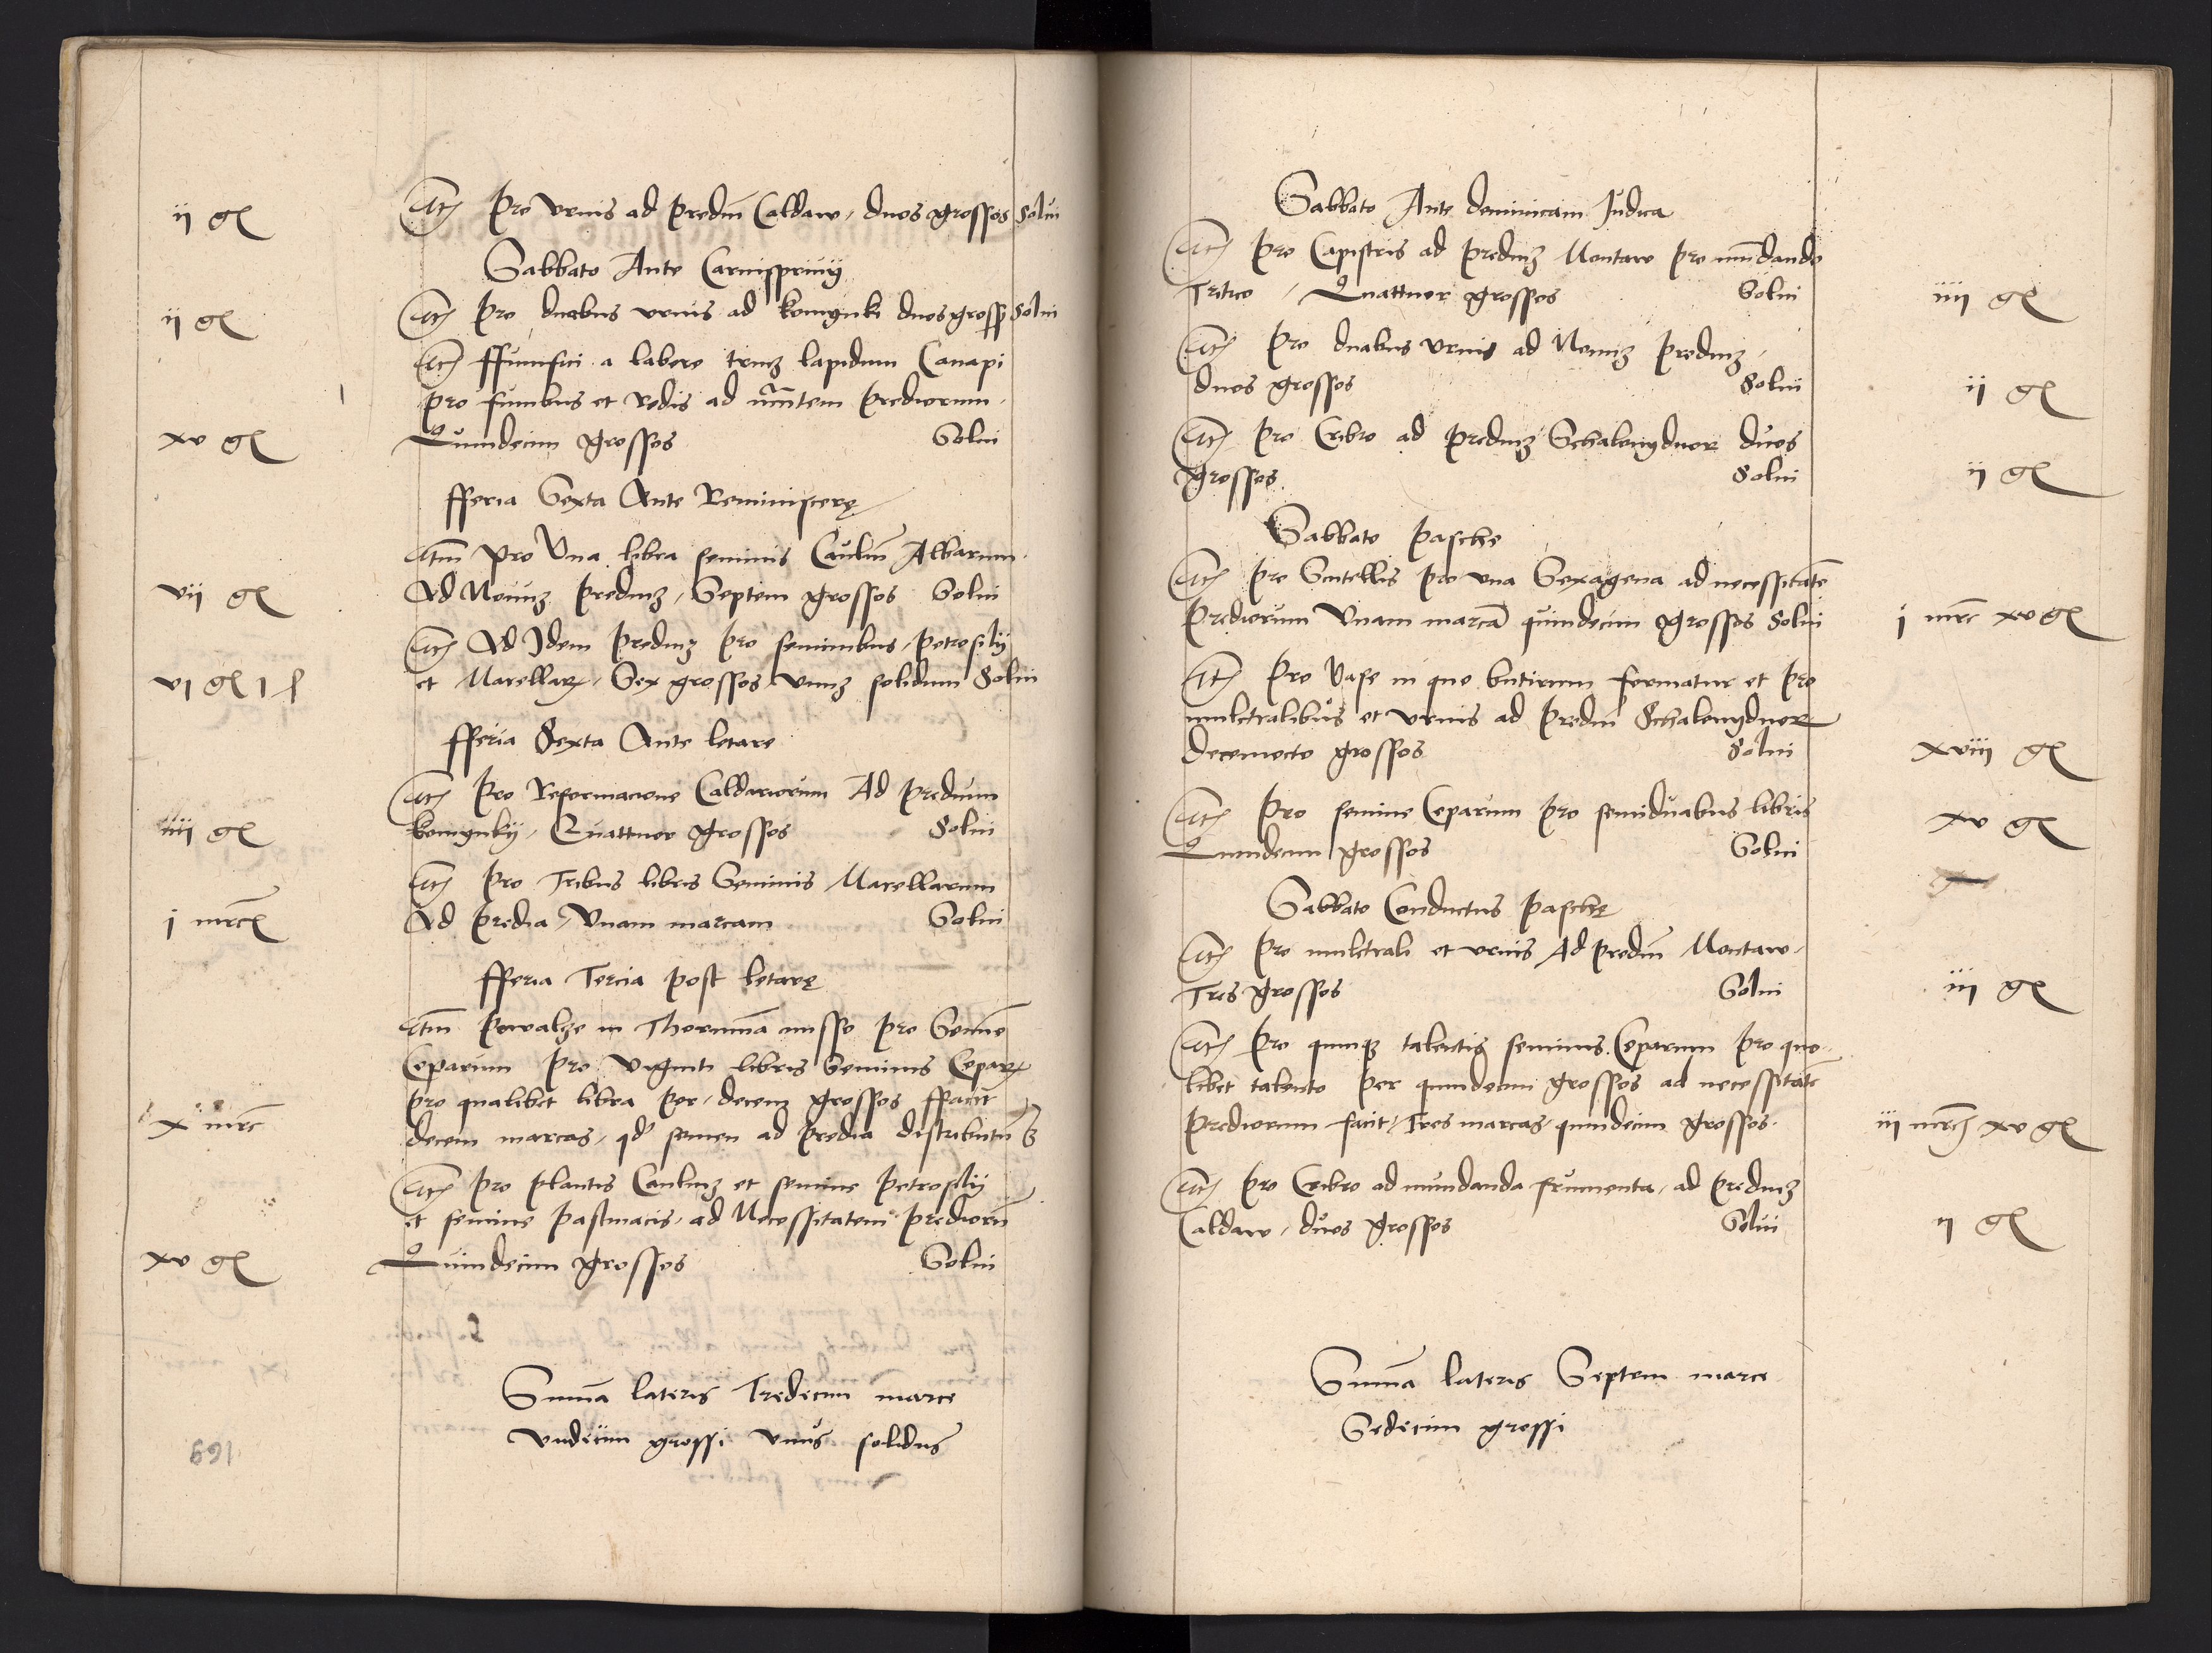 ij gl Itz pro vrnis ad prediu Caldaw, duos grossos Solui
Sabbato Ante Carnispriuij
ij gl Itz pro duabus vrnis ad komynki duos gross Solui
Itz ffunifici a labore triuz lapidum Canapi
pro funibus et redis ad prediorum
xv gl Quindecim grossos Solui
fferia Sexta Ante Reminiscerę
Itm pro Vna libra seminis Cauliu Albarum
vij gl Ad Nouuz prediuz, Septem grossos Solui
Itz Ad Idem prediuz pro seminibus, petrosilij
vj gl j ß et Marellar, Sex grossos vnuz solidum Solui
fferia Sexta Ante letare
Itz Pro Reformacione Caldariorum Ad predium
iiij gl komynkij, Quattuor grossos Solui
Itz pro Tribus libris Seminis Marellarum
j mrc Ad predia, Vnam marcam Solui
fferia Tercia post letarę
Itm Kowalze in Thorunia misso pro Semine
Ceparum pro viginti libris Seminis Cepar
pro qualibet libra per, decem grossos ffacit
x mrc decem marcas, qd semen ad predia distributu
Itz pro plantis Cauliuz et semine petrosilij
et semine pastinacis, ad Necessitatem predioru
xv gl Quindecim grossos Solui
Suma lateris Tredecim marce
vndecim grossi vnus solidus
169
Sabbato Ante dominicam Judica
Itz pro Capistris ad prediuz Montaw pro mundando
Tritico, Quattuor grossos Solui iiij gl
Itz pro duabus vrnis ad Nouuz prediuz,
duos grossos Solui ij gl
Itz pro Cribro ad prediuz Schaleuyduor duos
grossos Solui ij gl
Sabbato pasche
Itz pro Scutellis pro vna Sexagena ad necessitate
prediorum Vnam marca quindecim grossos Solui j mrc xv gl
Itz pro Vase in quo butirum formatur et pro
mulctralibus et vrnis ad prediu Schaleuyduor
decemocto grossos Solui xviij gl
Itz pro semine Ceparum pro semiduabus libris xv gl
Quindecim grossos Solui
Sabbato Conductus paschę
Itz pro mulctrali et vrnis Ad prediu Montaw,
Tres grossos Solui iij gl
Itz pro quinqz talentis seminis Ceparum pro quo
libet talento per quindecim grossos ad necessitate
prediorum facit, Tres marcas quindecim grossos iij mrc xv gl
Itz pro Cribro ad mundanda frumenta, ad prediuz
Caldaw, duos grossos Solui ij gl
Suma lateris Septem marce
Sedecim grossi